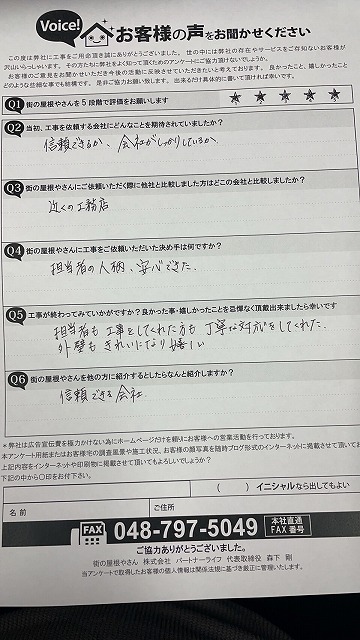 Voice!
お客様の声をお聞かせください
この度は弊社に工事をご用命頂き誠にありがとうございました。世の中には弊社の存在やサービスをご存知ないお客様が
沢山いらっしゃいます。その方たちに弊社をよく知って頂くためのアンケートにご協力頂けないでしょうか。
お客様のご意見をお聞かせいただき今後の活動に反映させていただきたいと考えております。良かったこと、嬉しかったこと
どのような些細な事でも結構です。是非ご協力お願い致します。出来るだけ具体的に書いて頂ければ幸いです。
Q1 街の屋根やさんを5段階で評価をお願いします ★ ★ ★ ★ ★
Q2 当初、工事を依頼する会社にどんなことを期待されていましたか?
信頼できるか、会社がしっかりしているか
Q3 街の屋根やさんにご依頼いただく際に他社と比較しました方はどこの会社と比較しましたか?
近くの工務店
Q4 街の屋根やさんに工事をご依頼いただいた決め手は何ですか?
担当者の人柄、安心できた。
Q5 工事が終わってみていかがですか?良かった事・嬉しかったことを忌憚なく頂戴出来ましたら幸いです
担当者も工事をしてくれた方も丁寧な対応をしてくれた。
外壁もきれいになり嬉しい
Q6 街の屋根やさんを他の方に紹介するとしたらなんと紹介しますか?
信頼できる会社
*弊社は広告宣伝費を極力かけない為にホームページだけを頼りにお客様への営業活動を行っております。
本アンケート用紙またはお客様宅の調査風景や施工状況、お客様の顔写真を随時ブログ形式のインターネットに掲載させて頂いてお
上記内容をインターネットや印刷物に掲載させて頂いてもよろしいでしょうか?
下記の中から〇印をお付け下さい。
( ) イニシャルなら出してもよい
名前
ご住所
FAX 048-797-5049 本社直通 FAX番号
ご協力ありがとうございました。
街の屋根やさん 株式会社 パートナーライフ 代表取締役 森下 剛
当アンケートで取得したお客様の個人情報は関係法規に基づき厳正に管理いたします。